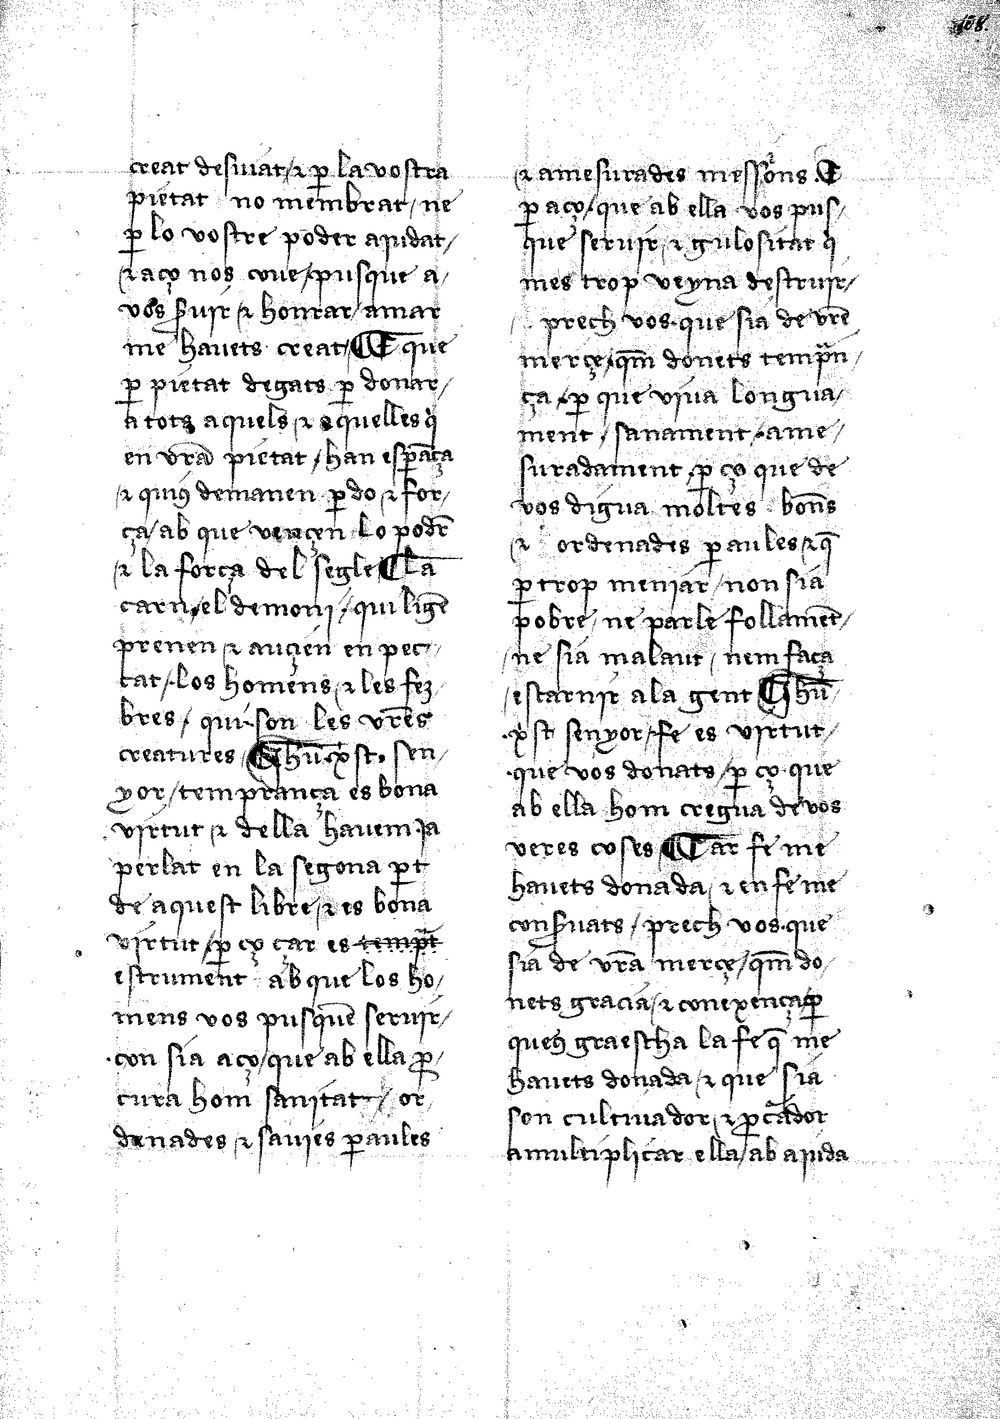 108.
creat desuiat / ⁊ ꝑ la vostra
pietat no membrat / ne
ꝑ lo vostre poder aiudat /
⁊ aço nos coue / pusque a /
vos ẜuir ⁊ honrar / amar
me hauets creat / E que
ꝑ pietat degats ꝑ donar /
a tots aquels ⁊ aquelles q̇
en vr̃a pietat / han esꝑãça
⁊ quiꝯ demanen ꝑdo ⁊ for /
ça / ab que vençen lo podr̃
⁊ la força del segle / La
carn / el demoni / qui ligẽ
prenen ⁊ aucien en pec /
cat / los homens ⁊ les fez
bres / qui son les vr̃es
creatures / Jhũ xp̃st · sen /
yor / temprança es bona
virtut ⁊ della hauem ia
perlat en la segona ꝑt
de aquest libre ⁊ es bona
virtut / ꝑ ço çar es temp̃t
estrument ab que los ho /
mens vos pusquẽ seruir /
con sia aço / que ab ella ꝓ /
cura hom sanitat / or
denades ⁊ sauies ꝑaules
⁊ amesurades messiõns . E
ꝑ aço / que ab ella vos pus /
que seruir ⁊ gulositat q̇
mes trop veyna destruir /
prech vos · que sia de vr̃e
merçe / qm̃ donets tempr̃n /
ça / ꝑ que viua longua /
ment / sanament / ame /
suradament / ꝑ ço que de
vos digua moltes boñs
⁊ ordenades ꝑaules ⁊ q̃
ꝑ trop meniar / non sia
pobre / ne parle follamẽt /
ne sia malaut / nem faça
escarnir a la gent Jhũ /
xp̃st senyor / fe es virtut /
que vos donats / ꝑ ço que
ab ella hom cregua de vos
veres coses / Car fe me
hauets donada / ⁊ en fe me
conẜuats / prech vos · que
sia de vr̃a merçe / qm̃ do /
nets gracia / ⁊ conexença ꝑ
queꝯ graescha la fe q̃ me
hauets donada / ⁊ que sia
son cultiuador / ⁊ ꝓcãdor
amultiplicar ella / ab aiuda